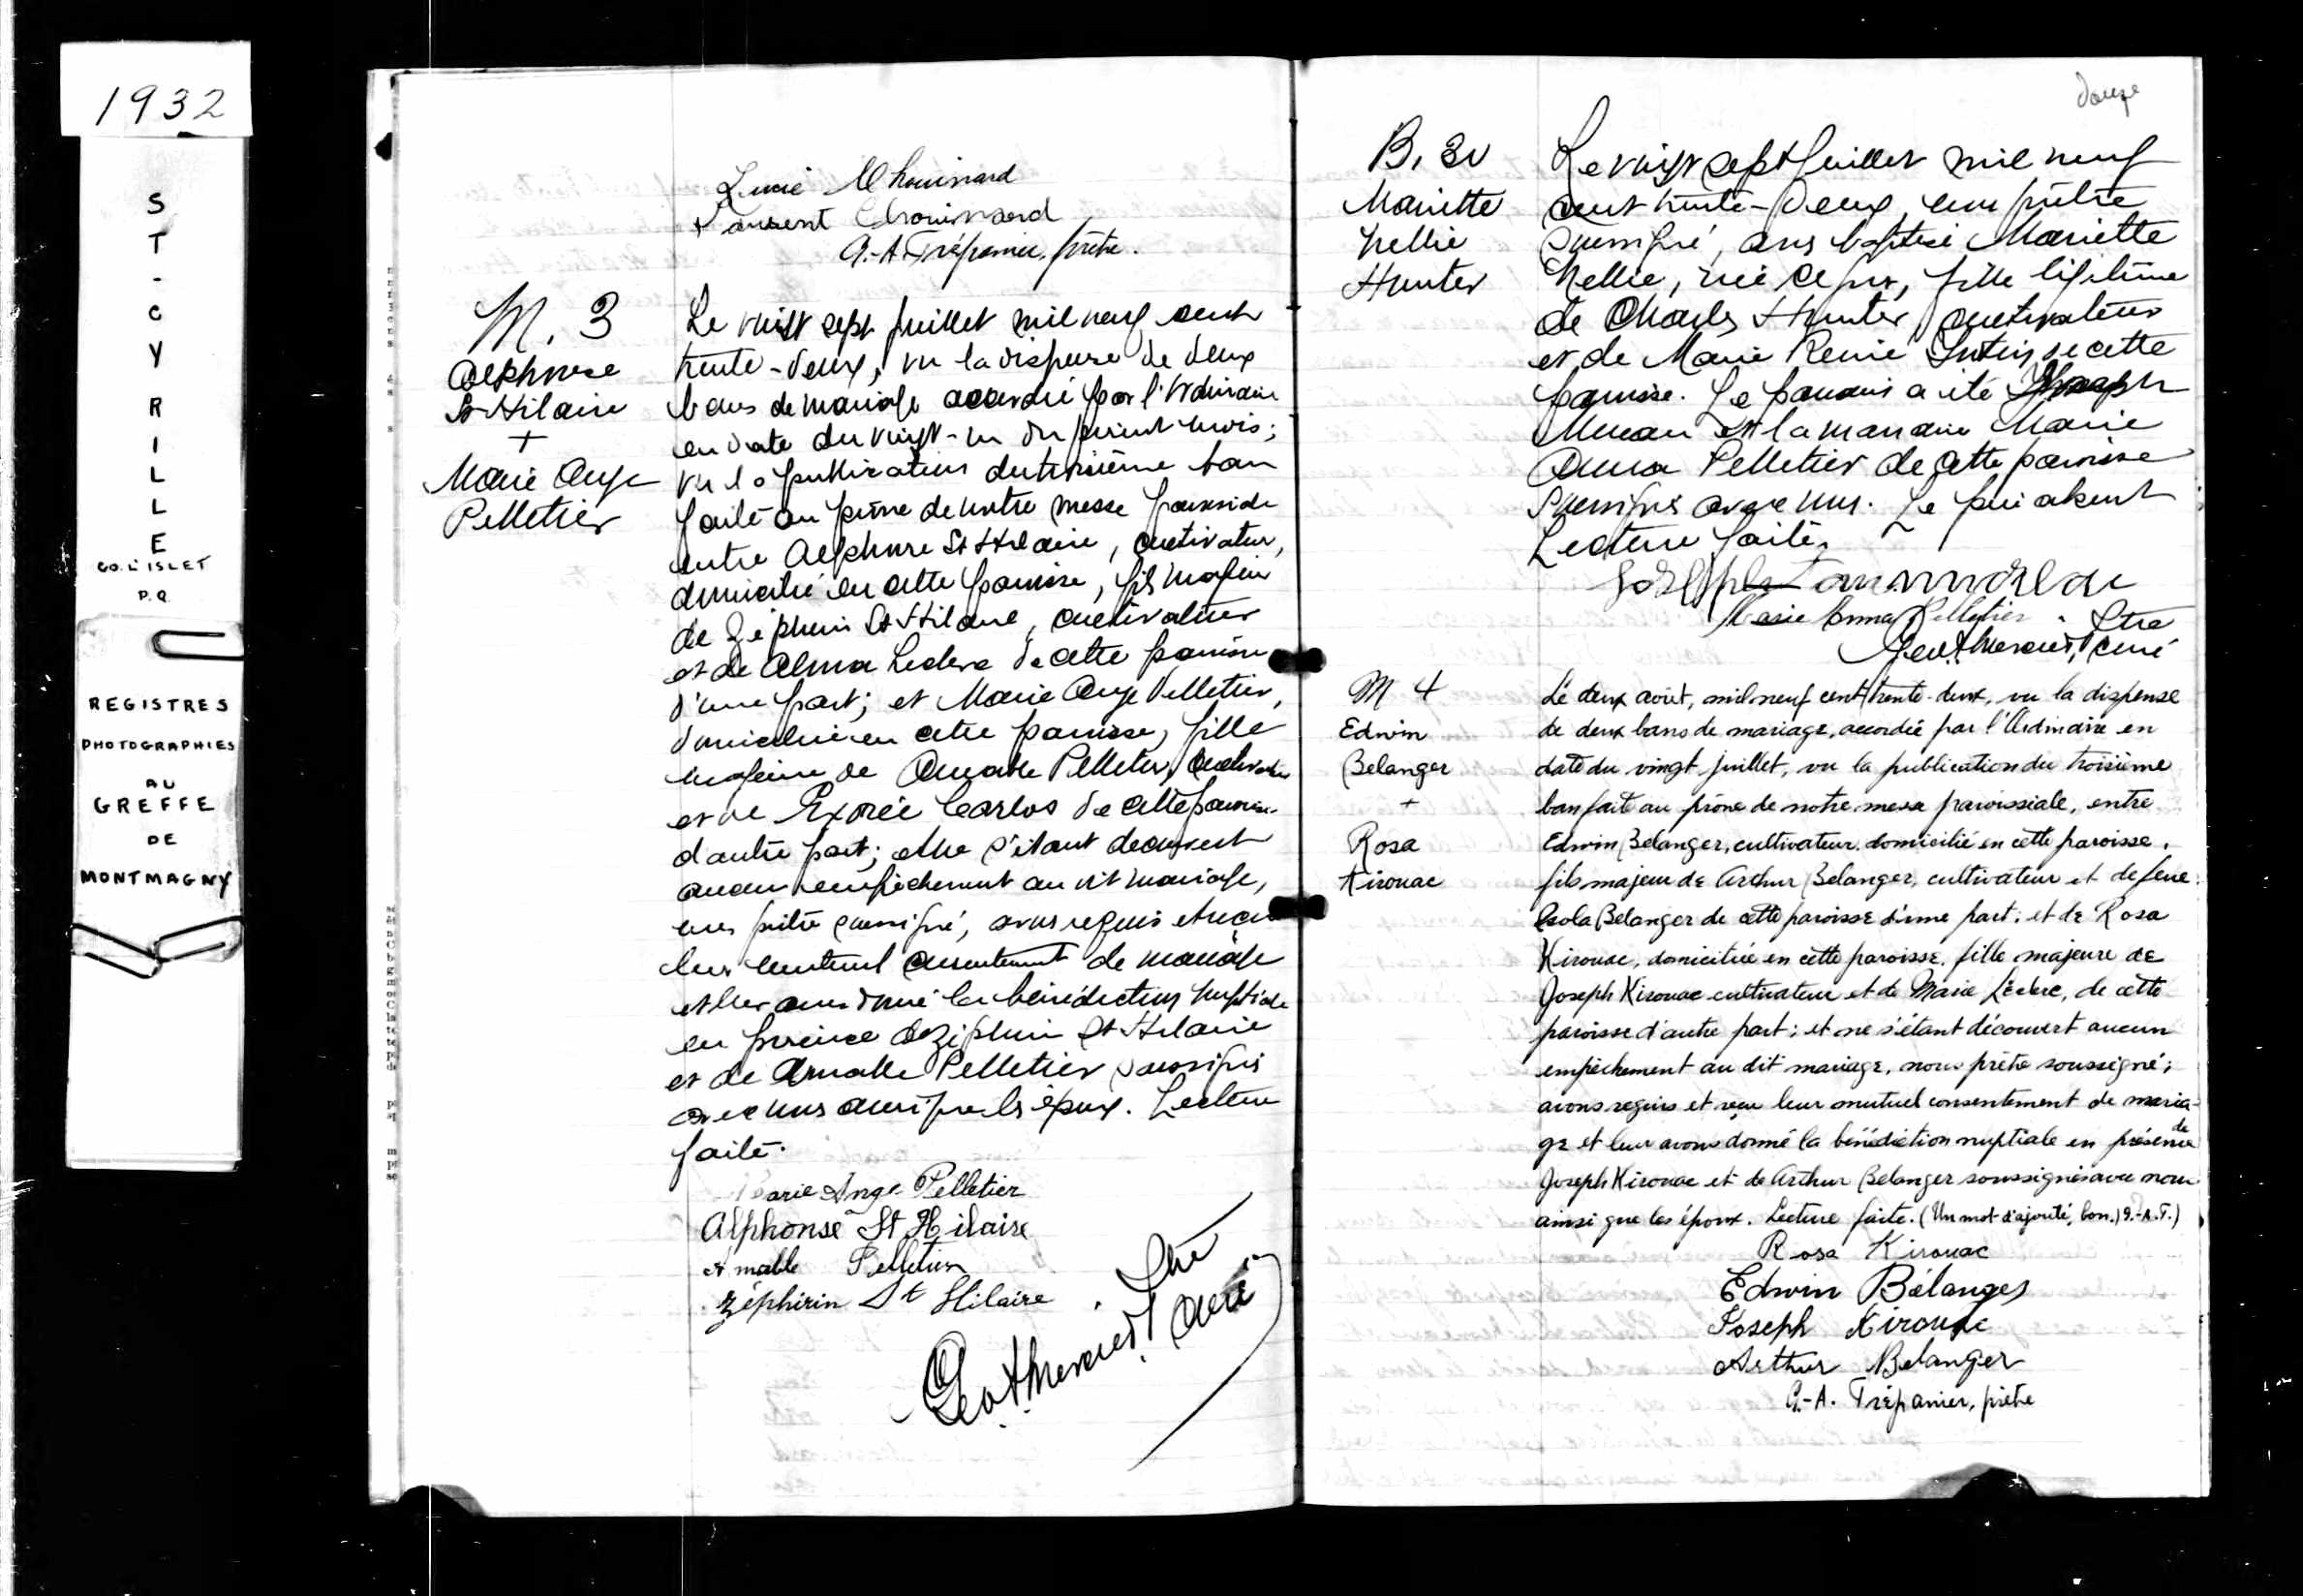 1932
ST-CYRILLE
CO. L'ISLET
P.Q.
REGISTRES
PHOTOGRAPHIES
AU
GREFFE
DE
MONTMAGNY
Chouinard
Laurent Chouinard
G.-A. Trépanier, prêtre.
M. 3
Alphonse
St Hilaire
+
Marie Ange
Pelletier
Le vingt sept juillet mil neuf cent
trente-deux, vu la dispense de deux
bans de mariage accordée par l'Ordinaire
en date du vingt-un du présent mois;
vu la publication du troisième ban
faite au prône de notre messe paroissiale
entre Alphonse St Hilaire, cultivateur,
domicilié en cette paroisse, fils majeur
de Zéphirin St Hilaire, cultivateur
et de Alma Leclerc de cette paroisse
d'une part; et Marie Ange Pelletier,
domiciliée en cette paroisse, fille
majeure de Amable Pelletier, cultivateur
et de Carlos de cette paroisse
d'autre part; et ne s'étant découvert
aucun empêchement au dit mariage,
nous prêtre soussigné, avons requis et reçu
leur mutuel consentement de mariage
et leur avons donné la bénédiction nuptiale
en présence de Zéphirin St Hilaire
et de Amable Pelletier soussignés
avec nous ainsi que les époux. Lecture
faite.
Marie Ange Pelletier
Alphonse St Hilaire
Amable Pelletier
Zéphirin St Hilaire
Ptre
curé
douze
B. 30
Mariette
Nellie
Hunter
Le vingt sept juillet mil neuf
cent trente-deux, nous prêtre
soussigné, avons baptisé Mariette
Nellie, née ce jour, fille légitime
de Charles Hunter, cultivateur
et de Marie Renée de cette
paroisse. Le parrain a été Joseph
et la marraine Marie
Anna Pelletier de cette paroisse
soussignés avec nous. Le père absent
Lecture faite.
Marie Anna Pelletier
Ptre
curé
M 4
Edwin
Belanger
+
Rosa
Kirouac
Le deux août, mil neuf cent trente-deux, vu la dispense
de deux bans de mariage, accordée par l'Ordinaire en
date du vingt juillet, vu la publication du troisième
ban faite au prône de notre messe paroissiale, entre
Edwin Belanger, cultivateur, domicilié en cette paroisse,
fils majeur de Arthur Belanger, cultivateur et de feue
Belanger de cette paroisse d'une part; et de Rosa
Kirouac, domiciliée en cette paroisse, fille majeure de
Joseph Kirouac cultivateur et de Marie Leclerc, de cette
paroisse d'autre part; et ne s'étant découvert aucun
empêchement au dit mariage, nous prêtre soussigné;
avons requis et reçu leur mutuel consentement de maria-
ge et leur avons donné la bénédiction nuptiale en présence de
Joseph Kirouac et de Arthur Belanger soussignés avec nous
ainsi que les époux. Lecture faite. (Un mot d'ajouté, bon.) G.-A.T.)
Rosa Kirouac
Edwin Bélanger
Joseph Kirouac
Arthur Belanger
G.-A. Trépanier, prêtre